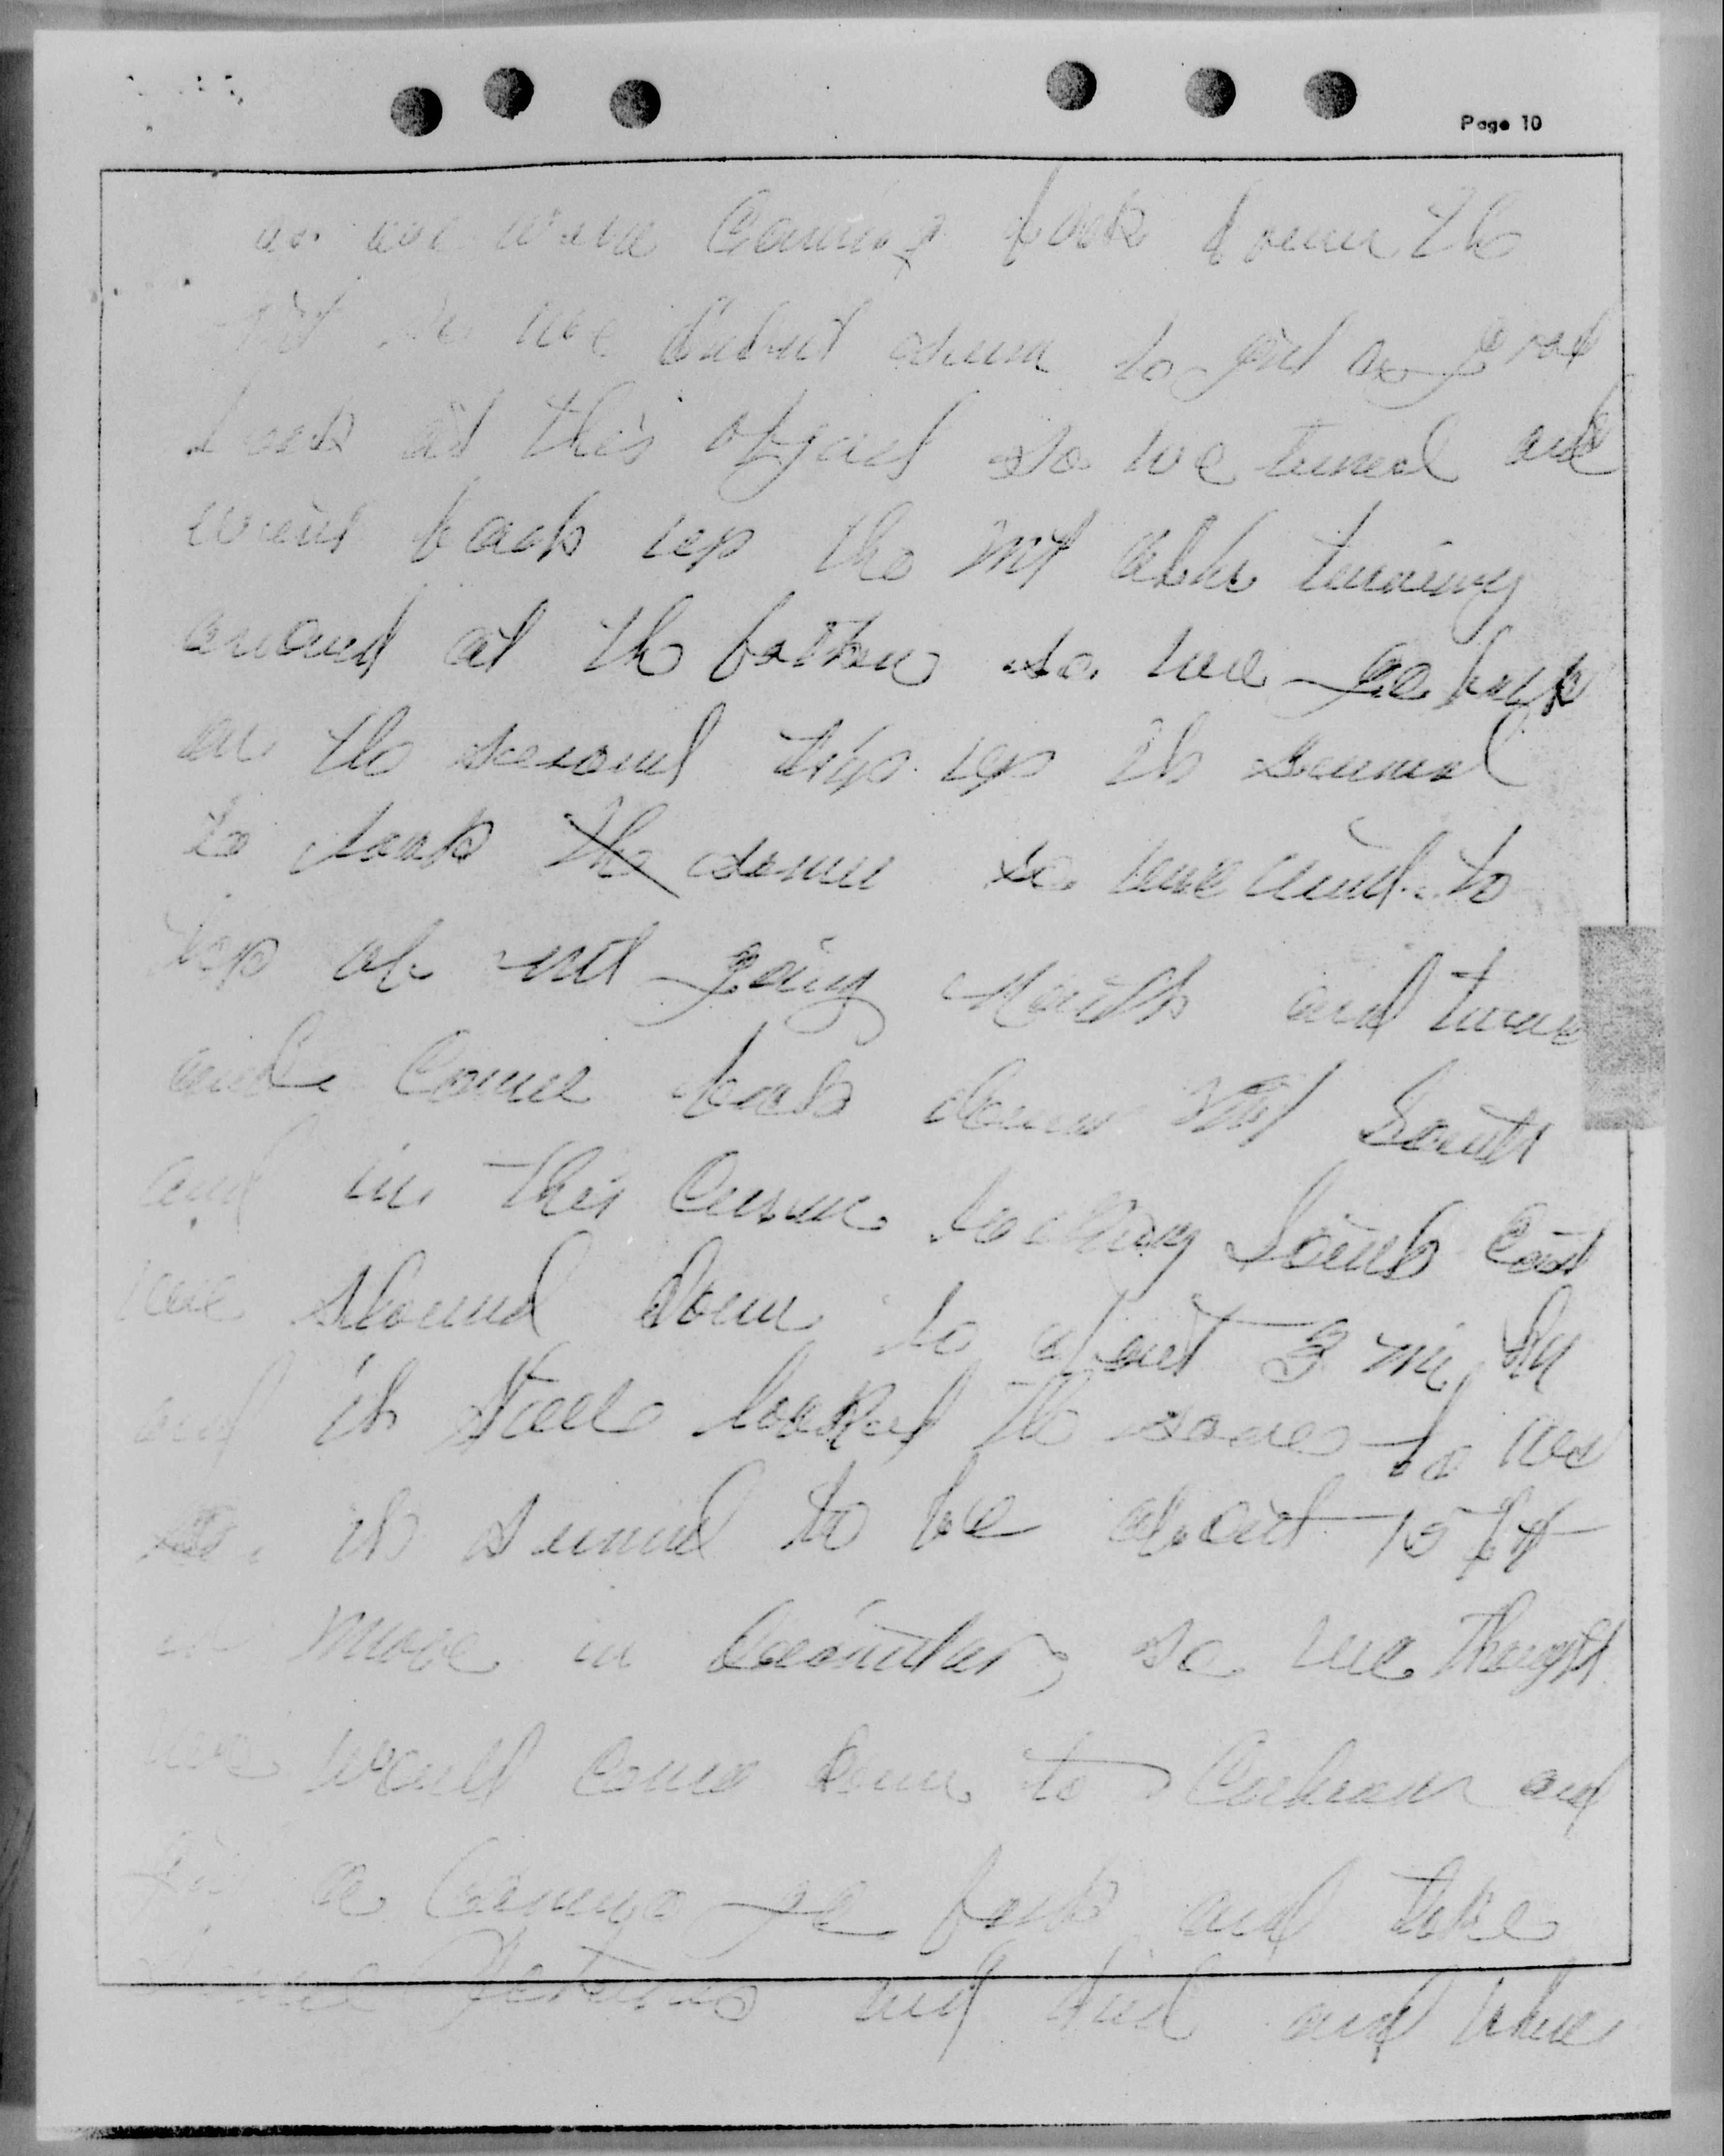 Page 10
as we were coming back down the
mt so we didnt seem to get a good
look at this object so we turned and
went back up the mt after turning
around at the bottom so we go back
on the second trip up it seemed
to look the same so we went to
top of mt going North and turned
and come back down mt South
and in this curve looking South East
we slowed down to about 3 mi hr
and it still looked the same to us
it seemed to be about 15 ft
or more in diameter so we thought
we would come down to Cochran and
get a camera go back and take
some pictures and did and when